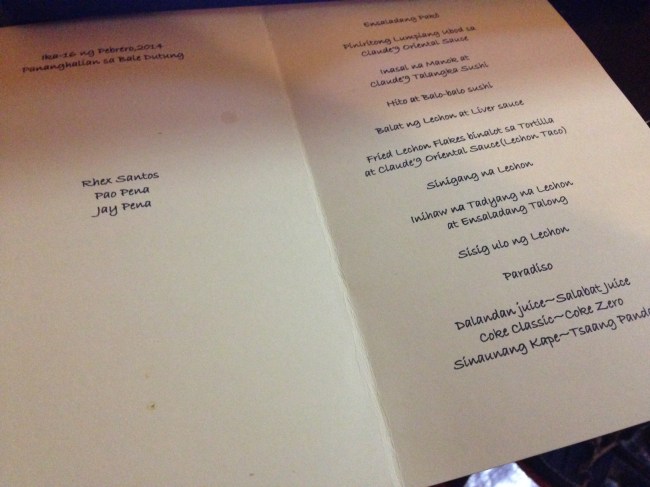 Ika-16 ng Pebrero,2014
Pananghalian sa Bale Dutung
Rhex Santos
Pao Pena
Jay Pena
Ensaladang Pako
Piniritong Lumpiang Ubod sa
Claude'g Oriental Sauce
Inasal na Manok at
Claude'g Talangka Sushi
Hito at Balo-balo sushi
Balat ng Lechon at Liver sauce
Fried Lechon Flakes binalot sa Tortilla
at Claude'g Oriental Sauce(Lechon Taco)
Sinigang na Lechon
Inihaw na Tadyang na Lechon
at Ensaladang Talong
Sisig ulo ng Lechon
Paradiso
Dalandan juice~Salabat juice
Coke Classic~Coke Zero
Sinaunang Kape~Tsaang Panda